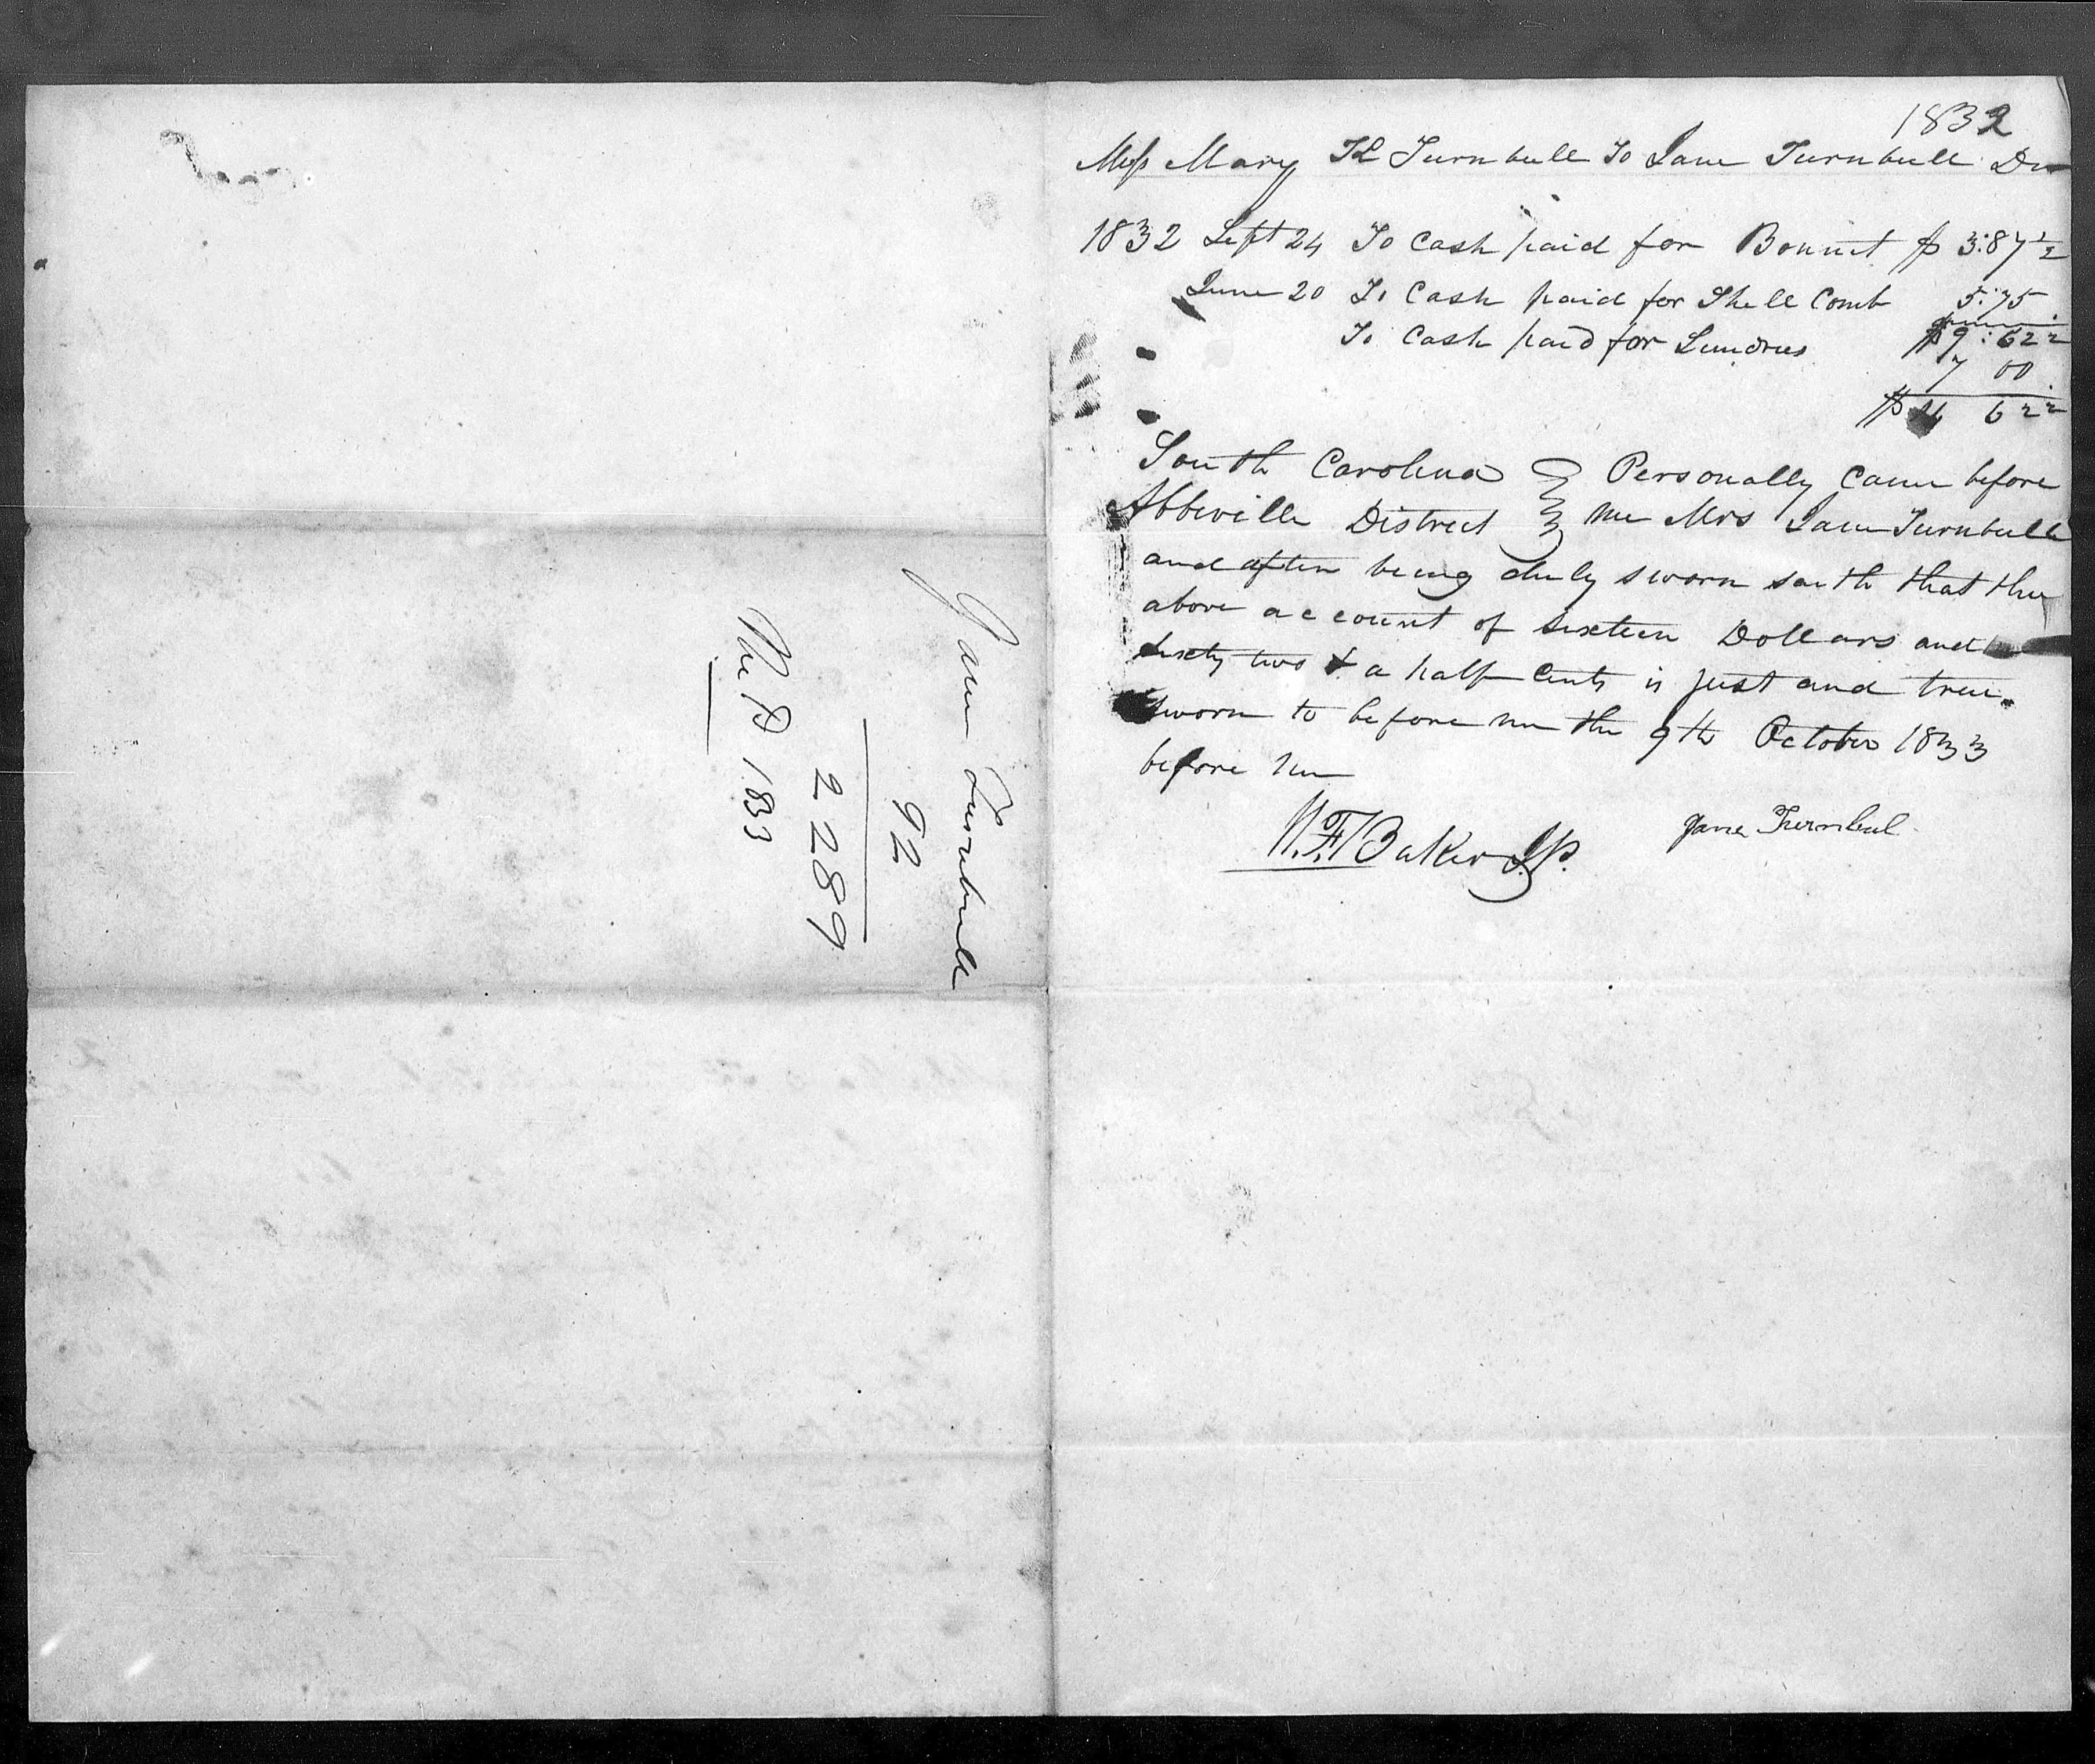 Jane Turnbull
92
2289
1833
1832
Miss Mary Turnbull To Jane Turnbull Dr
1832 Sept 24 To Cash paid for Bonnet $ 3:87½
June 20 To Cash paid for Shell Comb 5:75
To Cash paid for Sundries $9:62½
7 00
$16 62½
South Carolina } Personally Came before
Abbeville District } me Mrs Jane Turnbull
and after being duly sworn saith that the
above account of sixteen Dollars and
sixty two & a half Cents is just and true.
Sworn to before me the 9th October 1833
before me
W. F. Baker J.P.
Jane Turnbul